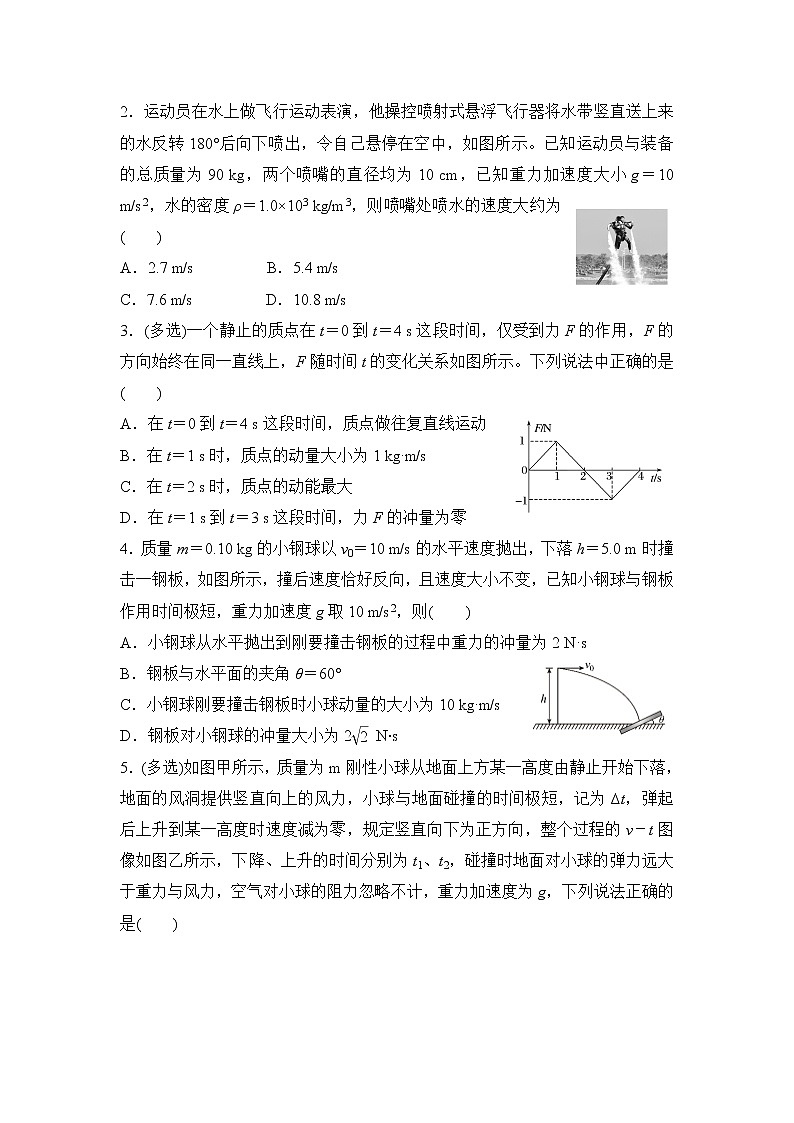 2．运动员在水上做飞行运动表演，他操控喷射式悬浮飞行器将水带竖直送上来
的水反转 180°后向下喷出，令自己悬停在空中，如图所示。已知运动员与装备
的总质量为 90 kg，两个喷嘴的直径均为 10 cm，已知重力加速度大小 g＝10
m/s²，水的密度 ρ＝1.0×10³ kg/m³，则喷嘴处喷水的速度大约为
(　　)
A．2.7 m/s　　B．5.4 m/s
C．7.6 m/s　　D．10.8 m/s
3．(多选)一个静止的质点在 t＝0 到 t＝4 s 这段时间，仅受到力 F 的作用，F 的
方向始终在同一直线上，F 随时间 t 的变化关系如图所示。下列说法中正确的是
(　　)
A．在 t＝0 到 t＝4 s 这段时间，质点做往复直线运动
B．在 t＝1 s 时，质点的动量大小为 1 kg·m/s
C．在 t＝2 s 时，质点的动能最大
D．在 t＝1 s 到 t＝3 s 这段时间，力 F 的冲量为零
F/N
1
0 1 2 3 4 t/s
−1
4．质量 m＝0.10 kg 的小钢球以 v₀＝10 m/s 的水平速度抛出，下落 h＝5.0 m 时撞
击一钢板，如图所示，撞后速度恰好反向，且速度大小不变，已知小钢球与钢板
作用时间极短，重力加速度 g 取 10 m/s²，则(　　)
A．小钢球从水平抛出到刚要撞击钢板的过程中重力的冲量为 2 N·s
B．钢板与水平面的夹角 θ＝60°
C．小钢球刚要撞击钢板时小球动量的大小为 10 kg·m/s
D．钢板对小钢球的冲量大小为 2√2 N·s
v₀
h
θ
5．(多选)如图甲所示，质量为 m 刚性小球从地面上方某一高度由静止开始下落，
地面的风洞提供竖直向上的风力，小球与地面碰撞的时间极短，记为 Δt，弹起
后上升到某一高度时速度减为零，规定竖直向下为正方向，整个过程的 v－t 图
像如图乙所示，下降、上升的时间分别为 t₁、t₂，碰撞时地面对小球的弹力远大
于重力与风力，空气对小球的阻力忽略不计，重力加速度为 g，下列说法正确的
是(　　)